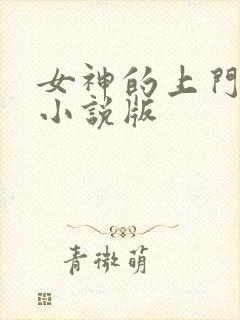 女神的上門
小說版
青微萌